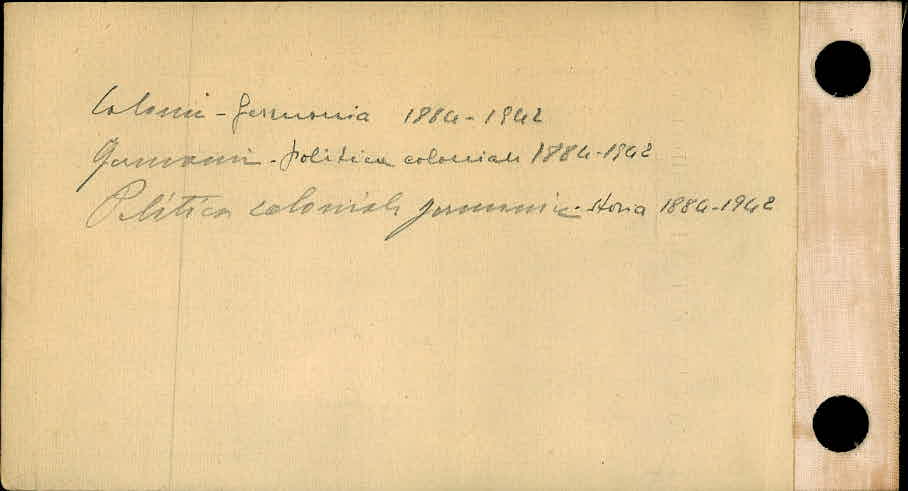 Colonie - Germania 1884-1942
Germania - politica coloniale 1884-1942
Politica coloniale germanica - storia 1884-1942